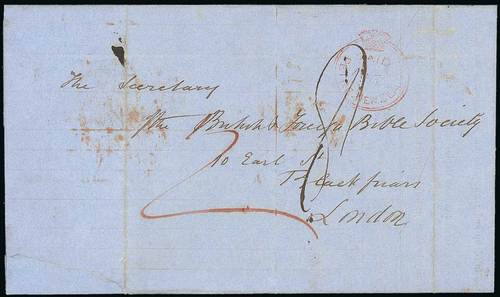 The Secretary
The British & Foreign Bible Society
10 Earl St
Blackfriars
London
PAID